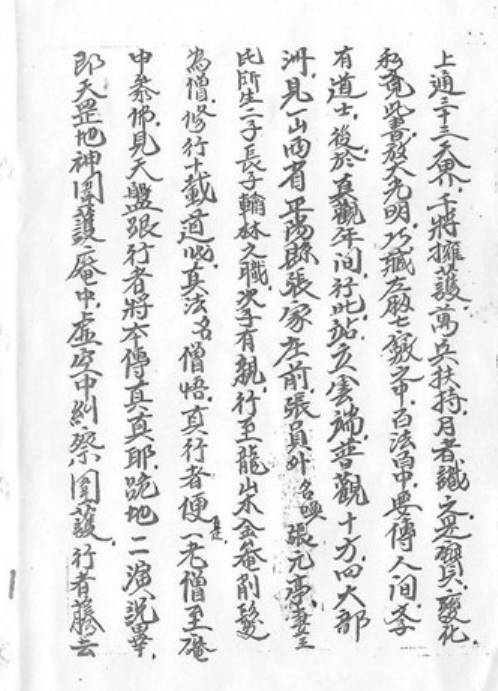 上通三十三天界，千將擁護，萬兵扶持，月者識之，是變化，
此書放大光明，巧藏在七竅之中，百法百中，要傳人间，李
有道士，後於真觀年间，行此站立雲端，普觀十方，四大部
洲，見一山西省平陽縣張家庄前，張員外名喚張元亭，妻王
氏所生二子，長子翰林之職，次子有親行至龍山水金菴削髮
為僧，修行十載道成，真法名僧悟真，行者便是一老僧至庵
中恭佛，見天盤張行者將本傳真真耶，跪地二演說畢，
即天罡地神圍護庵中，虛空中糾察圍護，行者騰云